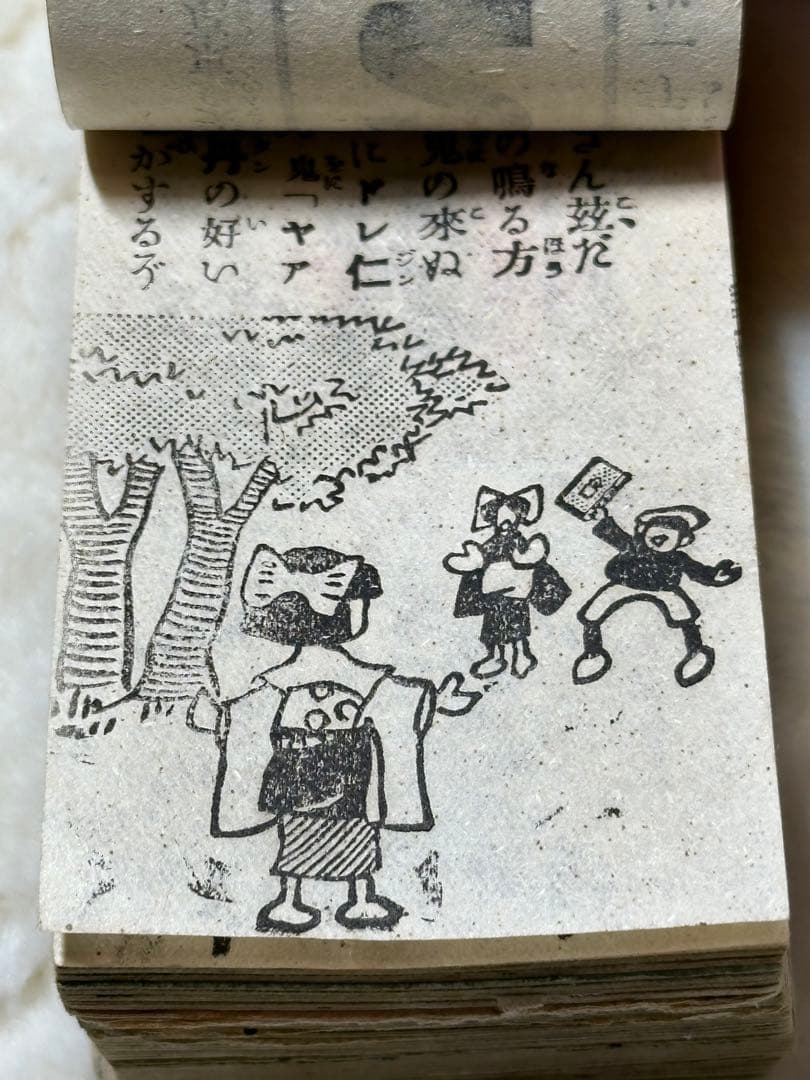 さん茲だ
の鳴る方
鬼の來ぬ
にドレ仁
鬼「ヤア
丹の好い
がするゾ